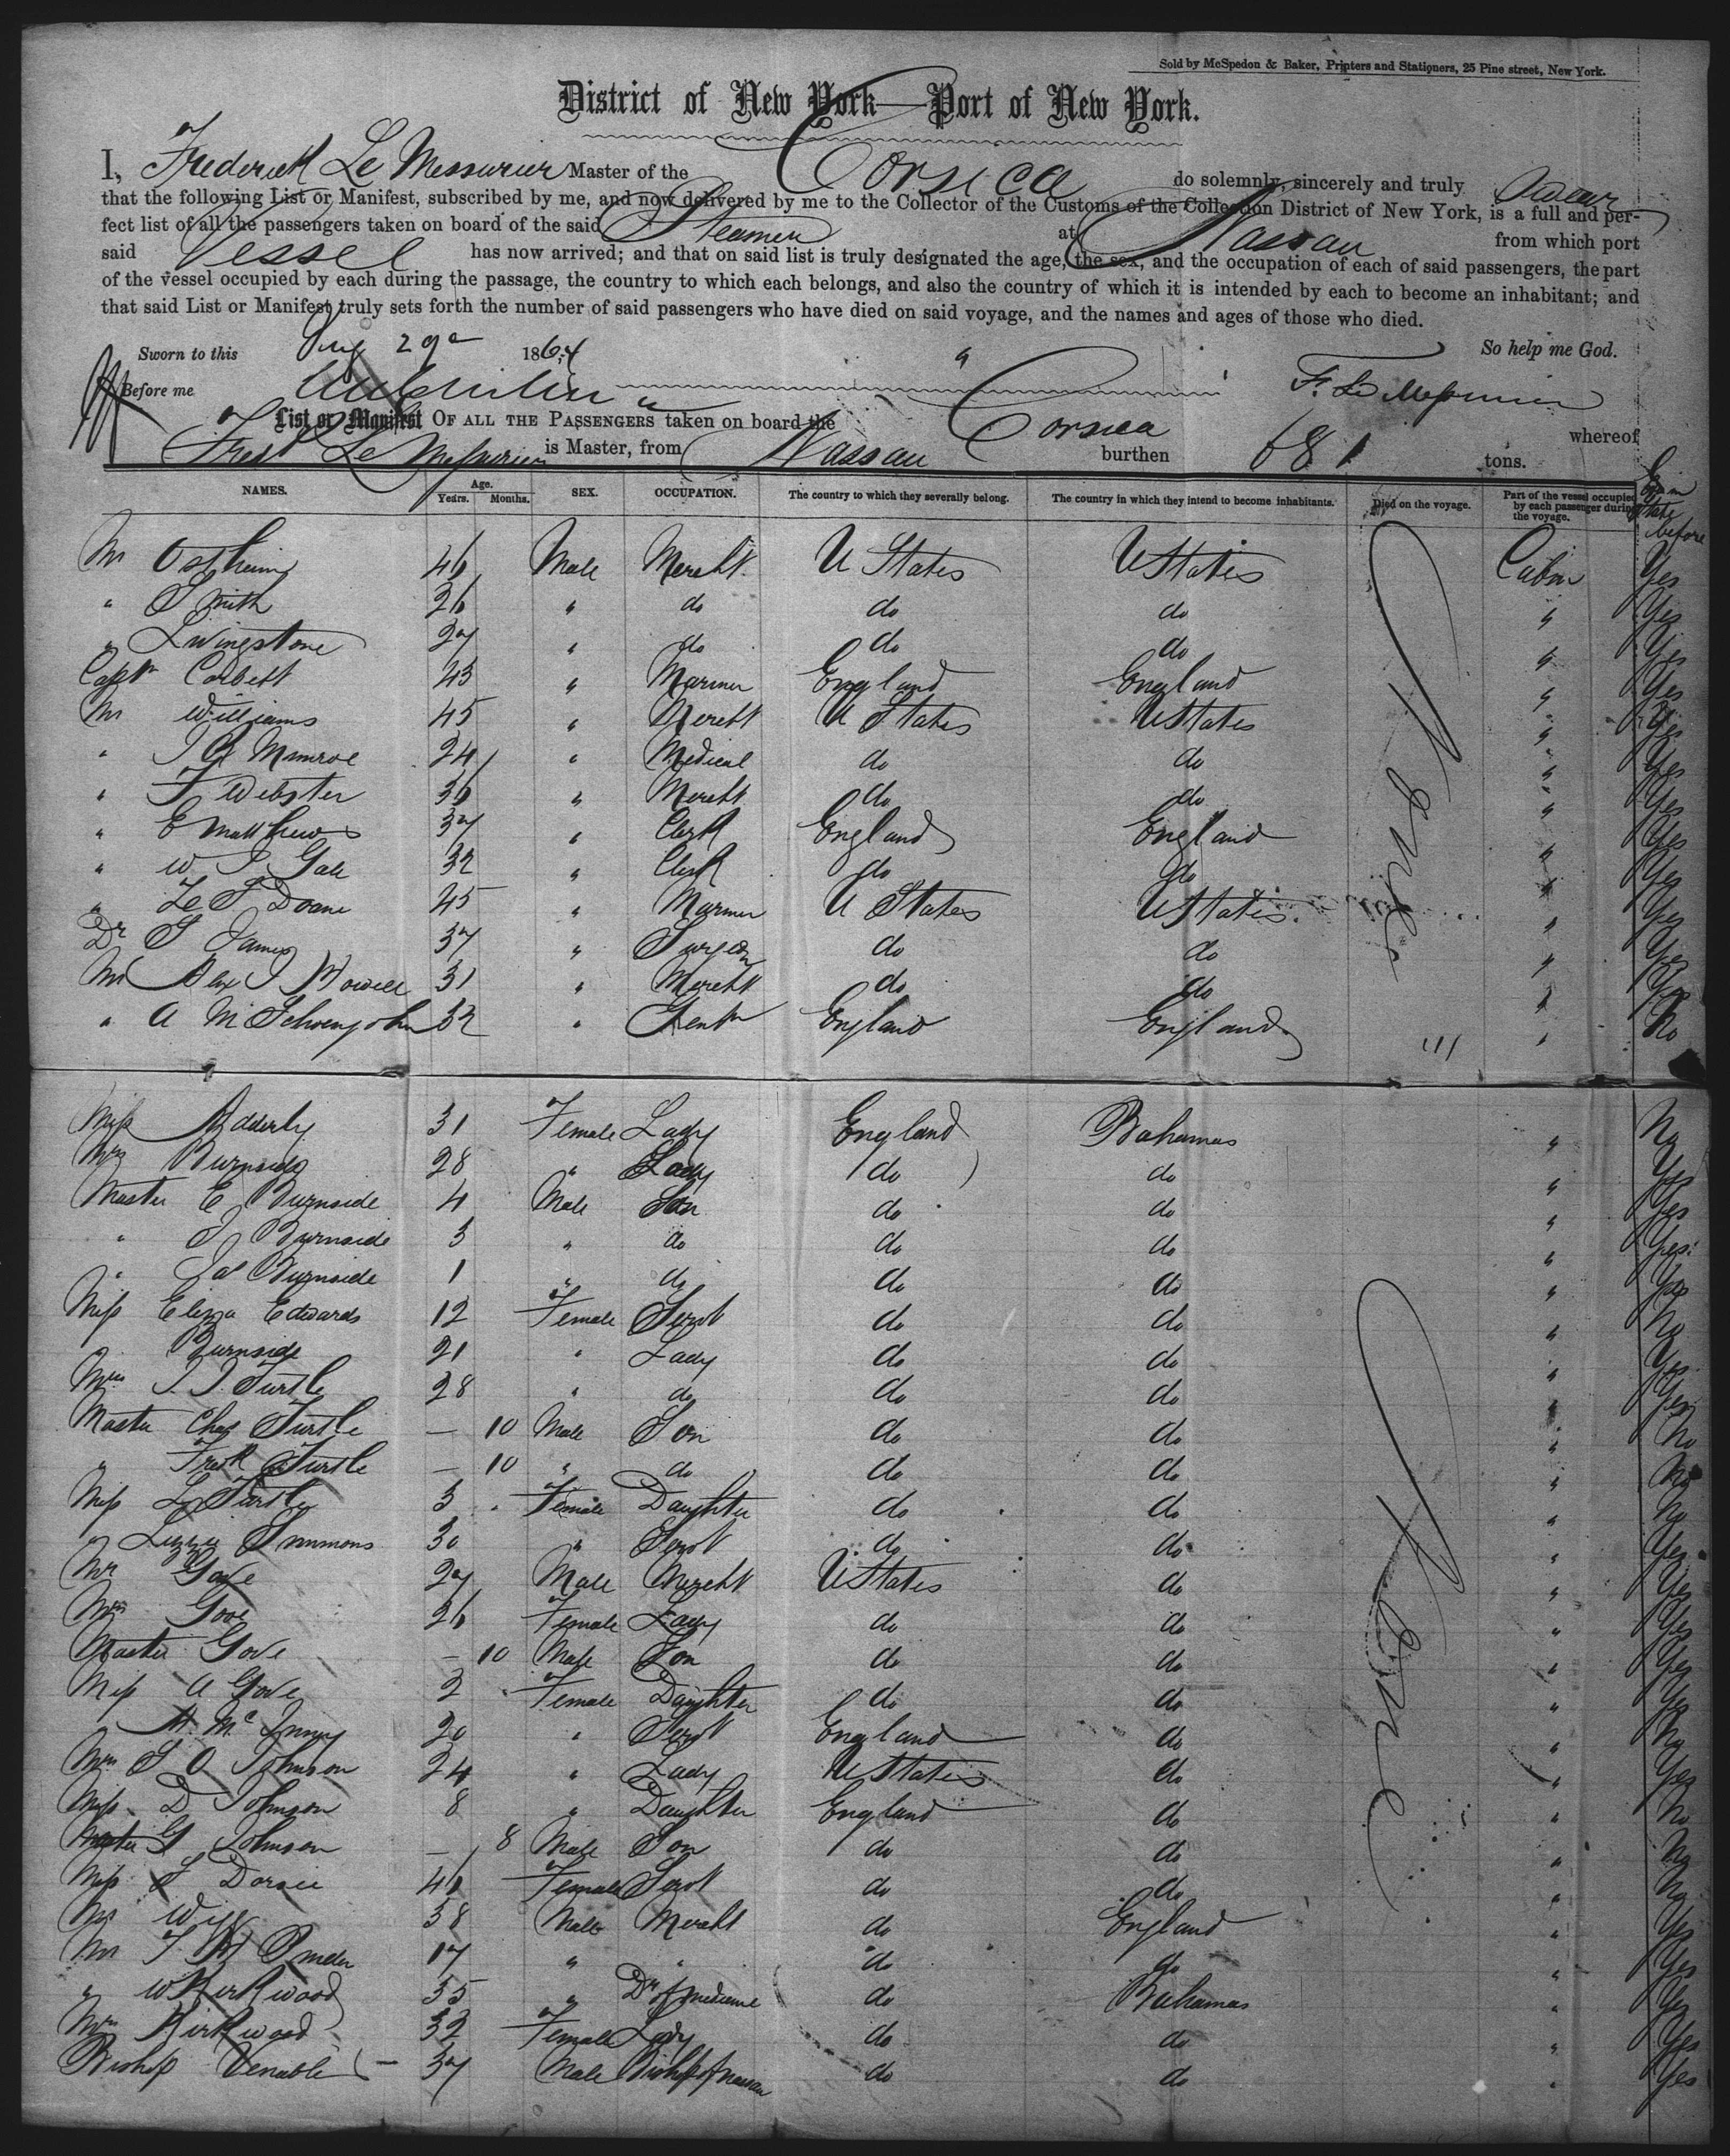 Sold by McSpedon & Baker, Printers and Stationers, 25 Pine street, New York.
District of New York—Port of New York.
I, Frederick Le Messurier Master of the Corsica do solemnly, sincerely and truly swear
that the following List or Manifest, subscribed by me, and now delivered by me to the Collector of the Customs of the Collection District of New York, is a full and per-
fect list of all the passengers taken on board of the said Steamer at Nassau from which port
said Vessel has now arrived; and that on said list is truly designated the age, the sex, and the occupation of each of said passengers, the part
of the vessel occupied by each during the passage, the country to which each belongs, and also the country of which it is intended by each to become an inhabitant; and
that said List or Manifest truly sets forth the number of said passengers who have died on said voyage, and the names and ages of those who died.
Sworn to this Aug 29 1864 So help me God.
Before me F. Le Messurier
List or Manifest OF ALL THE PASSENGERS taken on board the Corsica whereof
Fred Le Messurier is Master, from Nassau burthen 681 tons.
NAMES. Age. Years. Months. SEX. OCCUPATION. The country to which they severally belong. The country in which they intend to become inhabitants. Died on the voyage. Part of the vessel occupied by each passenger during the voyage. before
Mr Ostheim 46 Male Mercht. U States U States Cabin Yes
" Smith 26 " do do do " Yes
" Livingstone 27 " do do do " Yes
Captn Corbett 43 " Mariner England England " Yes
Mr Williams 45 " Mercht U States U States " Yes
" Munroe 24 " Medical do do " Yes
" F Webster 36 " Mercht do do " Yes
" E Matthews 37 " Clerk England England " Yes
" W S Gale 32 " Clerk do do " Yes
" Doane 45 " Mariner U States U States " Yes
Dr S James 37 " Surgeon do do " Yes
Mr Alex 31 " Mercht do do " Yes
" A M 32 " Gentn England England " No
Miss Adderly 31 Female Lady England Bahamas " No
Mrs Burnside 28 " Lady do do " Yes
Master E Burnside 4 Male Son do do " Yes
" J Burnside 3 " do do do " Yes
" Jas Burnside 1 " do do do " Yes
Miss Eliza Edwards 12 Female Servt do do " No
" Burnside 21 " Lady do do " Yes
Mrs Turtle 28 " do do do " Yes
Master Chas Turtle — 10 Male Son do do " No
" Fredk Turtle — 10 " do do do " No
Miss L Turtle 3 Female Daughter do do " No
" Lizzie Simmons 30 " Servt do do " Yes
Mr Gove 27 Male Mercht U States do " Yes
Mrs Gove 26 Female Lady do do " Yes
Master Gove — 10 Male Son do do " Yes
Miss A Gove 2 Female Daughter do do " Yes
20 " Servt England do " No
Mrs S O Johnson 24 " Lady U States do " Yes
Miss D Johnson 8 " Daughter England do " No
Master G Johnson — 8 Male Son do do " No
Miss S 46 Female Servt do do " No
Mr 38 Male Mercht do England " Yes
Mr 17 " " do do " Yes
" W Kirkwood 35 " Dr of Medicine do Bahamas " Yes
Mrs Kirkwood 32 Female Lady do do " Yes
Bishop Venables — 37 Male Bishop of Nassau do do " Yes